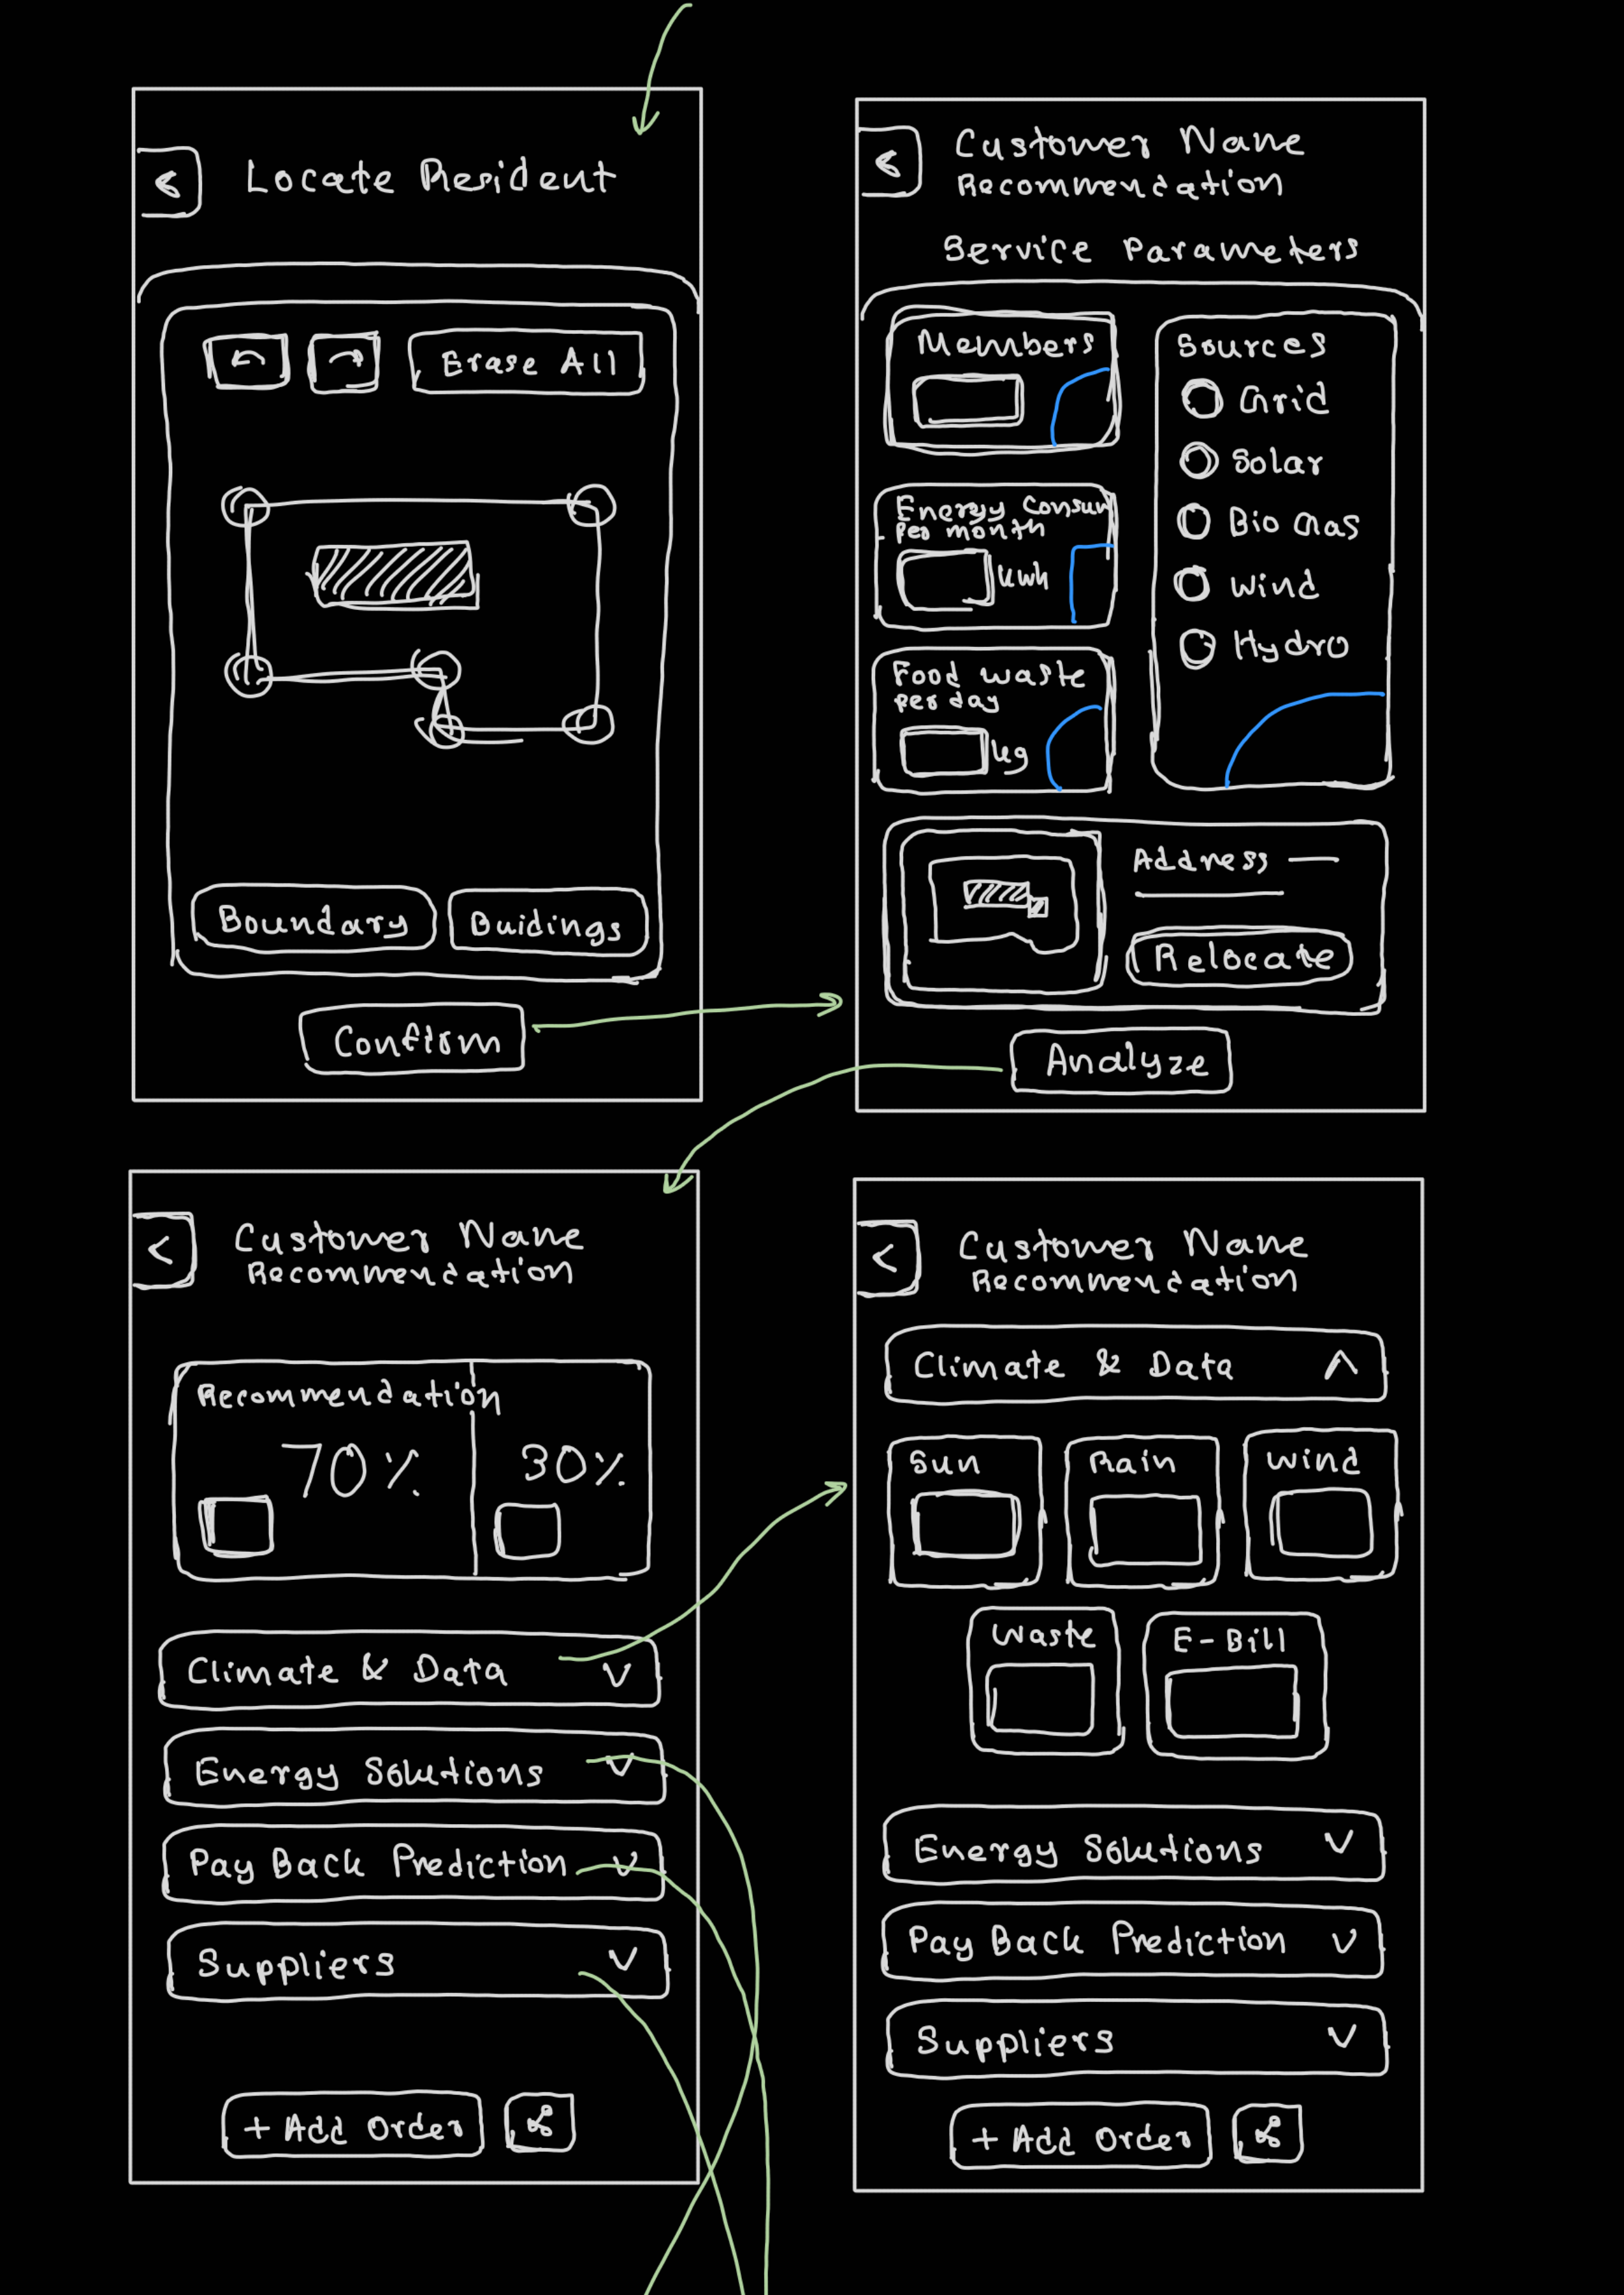 Locate Resident
Erase All
Boundary
Buidings
Confirm
Customer Name
Recommendation
Service Parameters
Members
Energy Consum
Per month
kwh
Food waste
per day
kg
Sources
Grid
Solar
Bio Gas
Wind
Hydro
Address
Relocate
Analyze
Customer Name
Recommendation
Recommendation
70%
30%
Climate & Data
Energy Solutions
Pay Back Prediction
Suppliers
+ Add Order
Customer Name
Recommendation
Climate & Data
Sun
Rain
Wind
Waste
E-Bill
Energy Solutions
Pay Back Prediction
Suppliers
+ Add Order